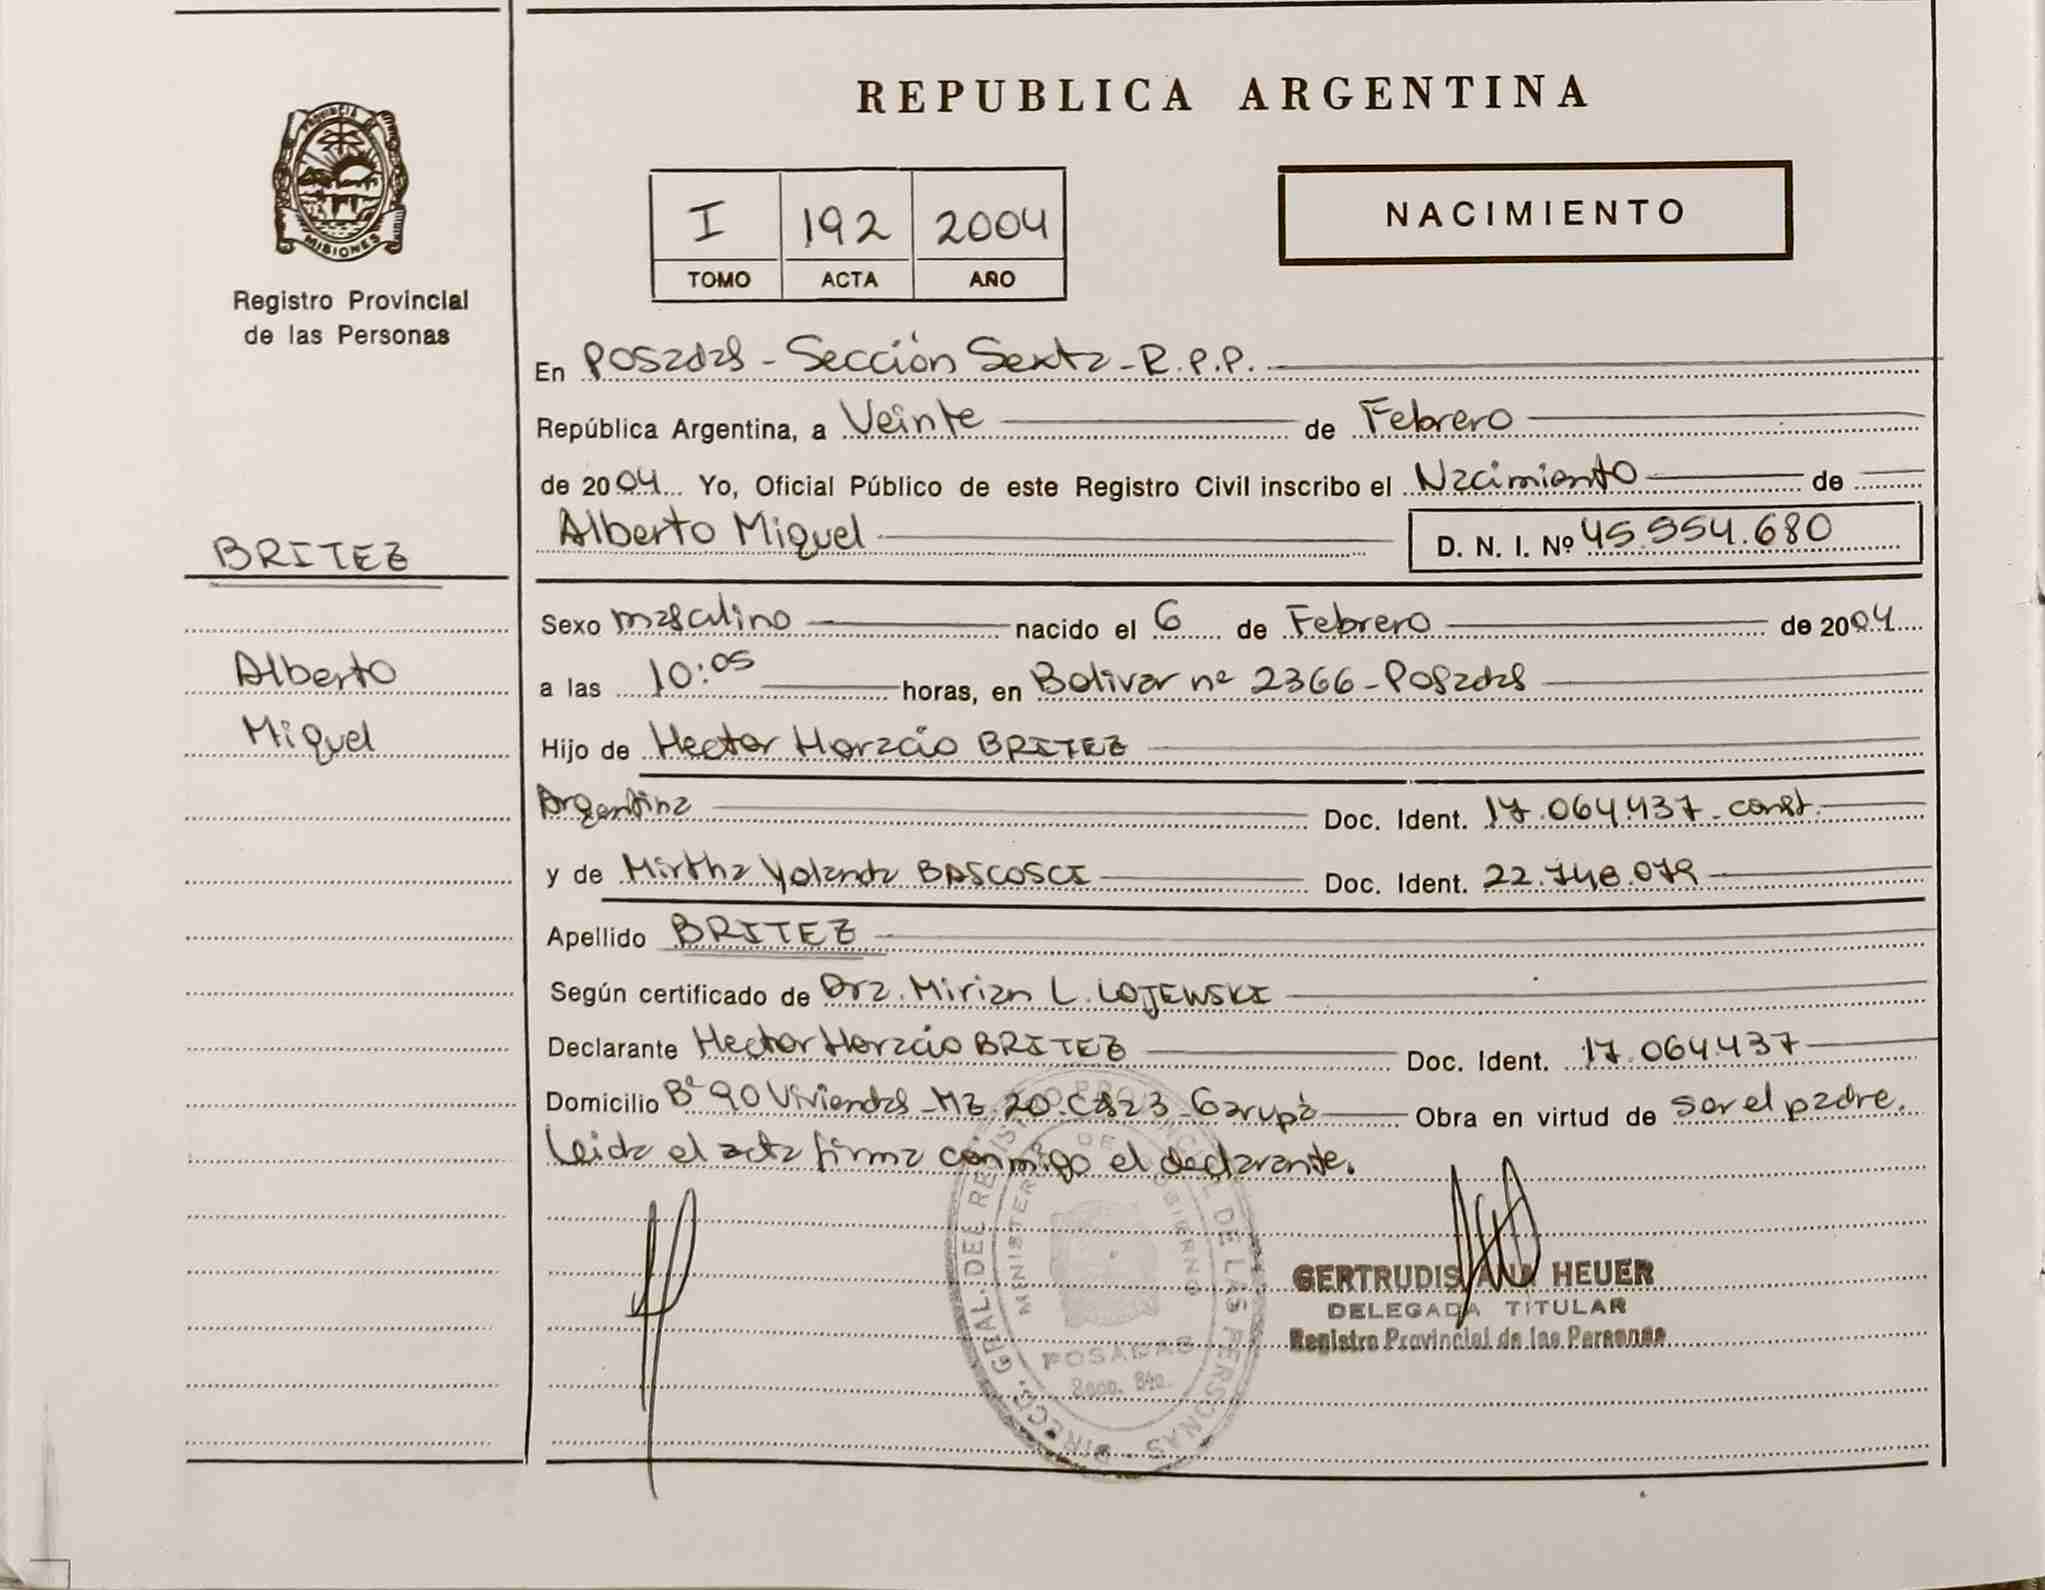 REPUBLICA ARGENTINA
PROVINCIA DE
MISIONES
Registro Provincial
de las Personas
I 192 2004
TOMO ACTA AÑO
NACIMIENTO
En Posadas - Sección Sexta - R.P.P.
República Argentina, a Veinte de Febrero
de 2004 Yo, Oficial Público de este Registro Civil inscribo el Nacimiento de
Alberto Miguel D. N. I. Nº 45.554.680
BRITEZ
Alberto
Miguel
Sexo masculino nacido el 6 de Febrero de 2004
a las 10:05 horas, en Bolivar nº 2366 - Posadas
Hijo de Hector Horacio BRITEZ
Argentina Doc. Ident. 17.064.437 - const.
y de Mirtha Yolanda BASCOSCI Doc. Ident. 22.748.079
Apellido BRITEZ
Según certificado de Dra. Mirian L. LOJEWSKI
Declarante Hector Horacio BRITEZ Doc. Ident. 17.064.437
Domicilio Bº 90 Viviendas - Mz. 20 - Garupá Obra en virtud de ser el padre.
Leida el acta firma conmigo el declarante.
DIRECC. GRAL. DEL REGISTRO PROVINCIAL DE LAS PERSONAS
MINISTERIO DE GOBIERNO
POSADAS
GERTRUDIS ANA HEUER
DELEGADA TITULAR
Registro Provincial de las Personas